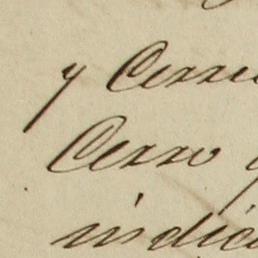 y Cerre
Cerro
indica